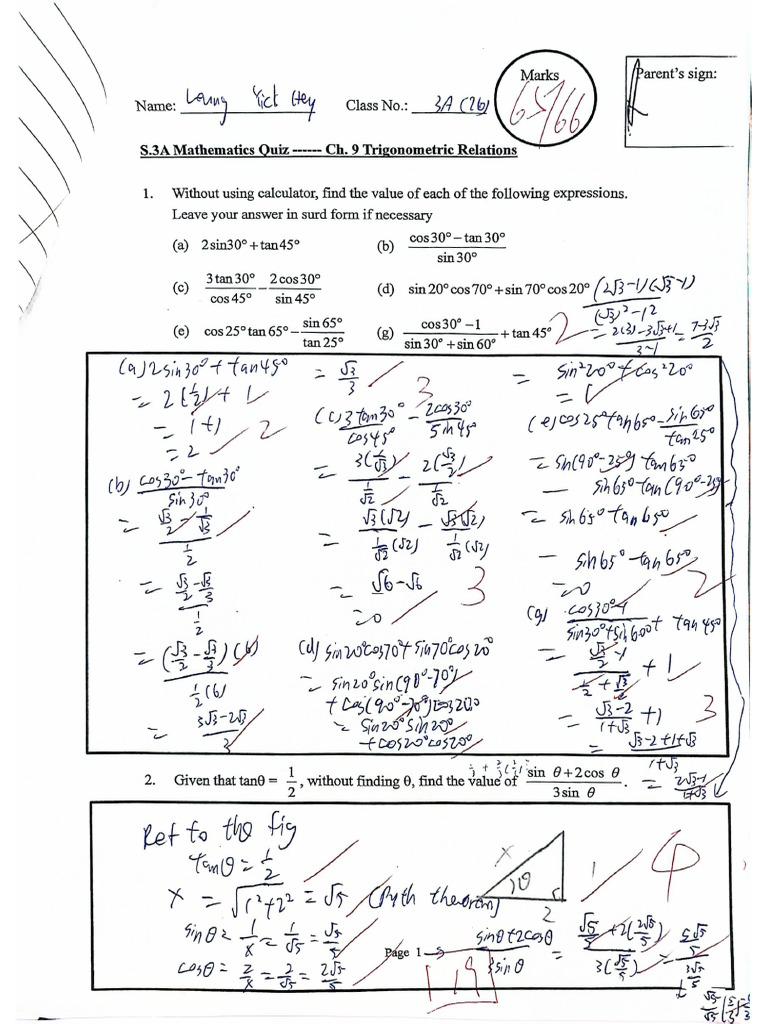 Marks
65/66
Parent's sign:
Name: Leung Yict Hey Class No.: 3A (26)
S.3A Mathematics Quiz ------ Ch. 9 Trigonometric Relations
1. Without using calculator, find the value of each of the following expressions.
Leave your answer in surd form if necessary
(a) 2sin30° + tan45° (b) (cos30° − tan30°)/sin30°
(c) 3tan30°/cos45° − 2cos30°/sin45° (d) sin20°cos70° + sin70°cos20°
(e) cos25°tan65° − sin65°/tan25° (g) (cos30° − 1)/(sin30° + sin60°) + tan45°
(2√3−1)(√3−1)/((√3)²−1²)
2
= (2(3)−3√3+1)/(3−1) = (7−3√3)/2
(a) 2sin30° + tan45°
= 2(1/2) + 1
= 1+1
= 2
2
(b) (cos30° − tan30°)/sin30°
= (√3/2 − 1/√3)/(1/2)
= (√3/2 − √3/3)/(1/2)
= (√3/2 − √3/3)(6)/(1/2(6))
= (3√3−2√3)/3
= √3/3
3
(c) 3tan30°/cos45° − 2cos30°/sin45°
= 3(1/√3)/(1/√2) − 2(√3/2)/(1/√2)
= √3(√2)/(1/√2(√2)) − √3(√2)/(1/√2(√2))
= √6−√6
= 0
3
(d) sin20°cos70° + sin70°cos20°
= sin20°sin(90°−70°)
+ cos(90°−70°)cos20°
= sin20°sin20°
+ cos20°cos20°
= sin²20° + cos²20°
= 1
(e) cos25°tan65° − sin65°/tan25°
= sin(90°−25°)tan65°
− sin65°tan(90°−25°)
= sin65°tan65°
− sin65°tan65°
= 0
2
(g) (cos30°−1)/(sin30°+sin60°) + tan45°
= (√3/2 −1)/(1/2 + √3/2) + 1
= (√3−2)/(1+√3) + 1
3
= (√3−2+1+√3)/(1+√3)
= (2√3−1)/(1+√3)
2. Given that tanθ = 1/2, without finding θ, find the value of (sin θ + 2cos θ)/(3sin θ).
Ref to the fig
tanθ = 1/2
x = √(1²+2²) = √5 (Pyth theorem)
sinθ = 1/x = 1/√5 = √5/5
cosθ = 2/x = 2/√5 = 2√5/5
x
θ
1
2
4
(sinθ+2cosθ)/(3sinθ) = (√5/5 + 2(2√5/5))/(3(√5/5)) = (5√5/5)/(3√5/5)
Page 1
19